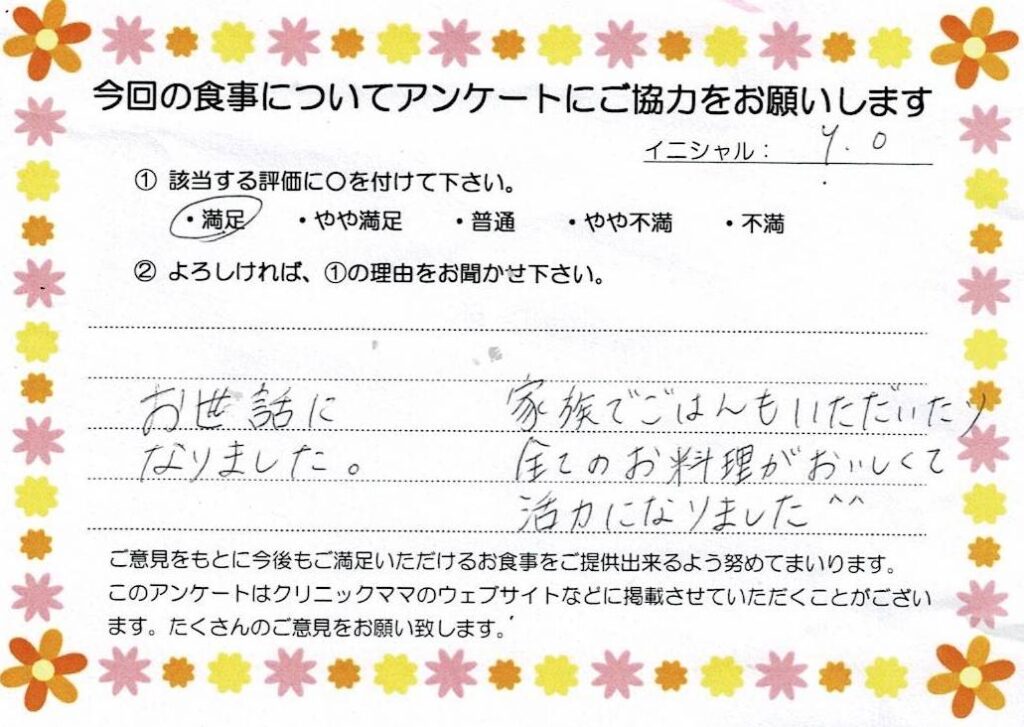 今回の食事についてアンケートにご協力をお願いします
イニシャル： Y. O
① 該当する評価に〇を付けて下さい。
・満足 ・やや満足 ・普通 ・やや不満 ・不満
② よろしければ、①の理由をお聞かせ下さい。
お世話に
なりました。
家族でごはんもいただいたり
全てのお料理がおいしくて
活力になりました^^
ご意見をもとに今後もご満足いただけるお食事をご提供出来るよう努めてまいります。
このアンケートはクリニックママのウェブサイトなどに掲載させていただくことがござい
ます。たくさんのご意見をお願い致します。